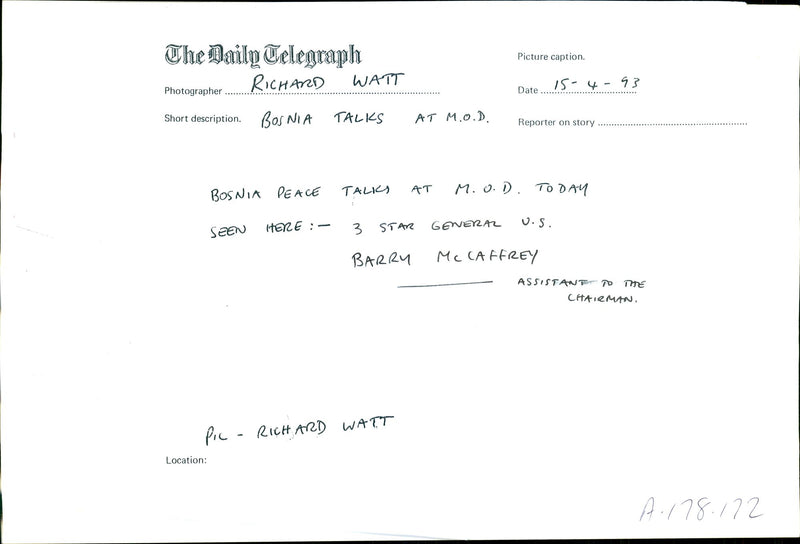 The Daily Telegraph
Picture caption.
Photographer RICHARD WATT
Date 15-4-93
Short description. BOSNIA TALKS AT M.O.D.
Reporter on story
BOSNIA PEACE TALKS AT M.O.D. TODAY
SEEN HERE:- 3 STAR GENERAL U.S.
BARRY McCAFFREY
ASSISTANT TO THE
CHAIRMAN.
PIC - RICHARD WATT
Location:
A.178.172